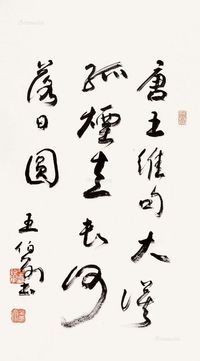 唐王维句大漠
孤煙直長河
落日圆
王伯敏书